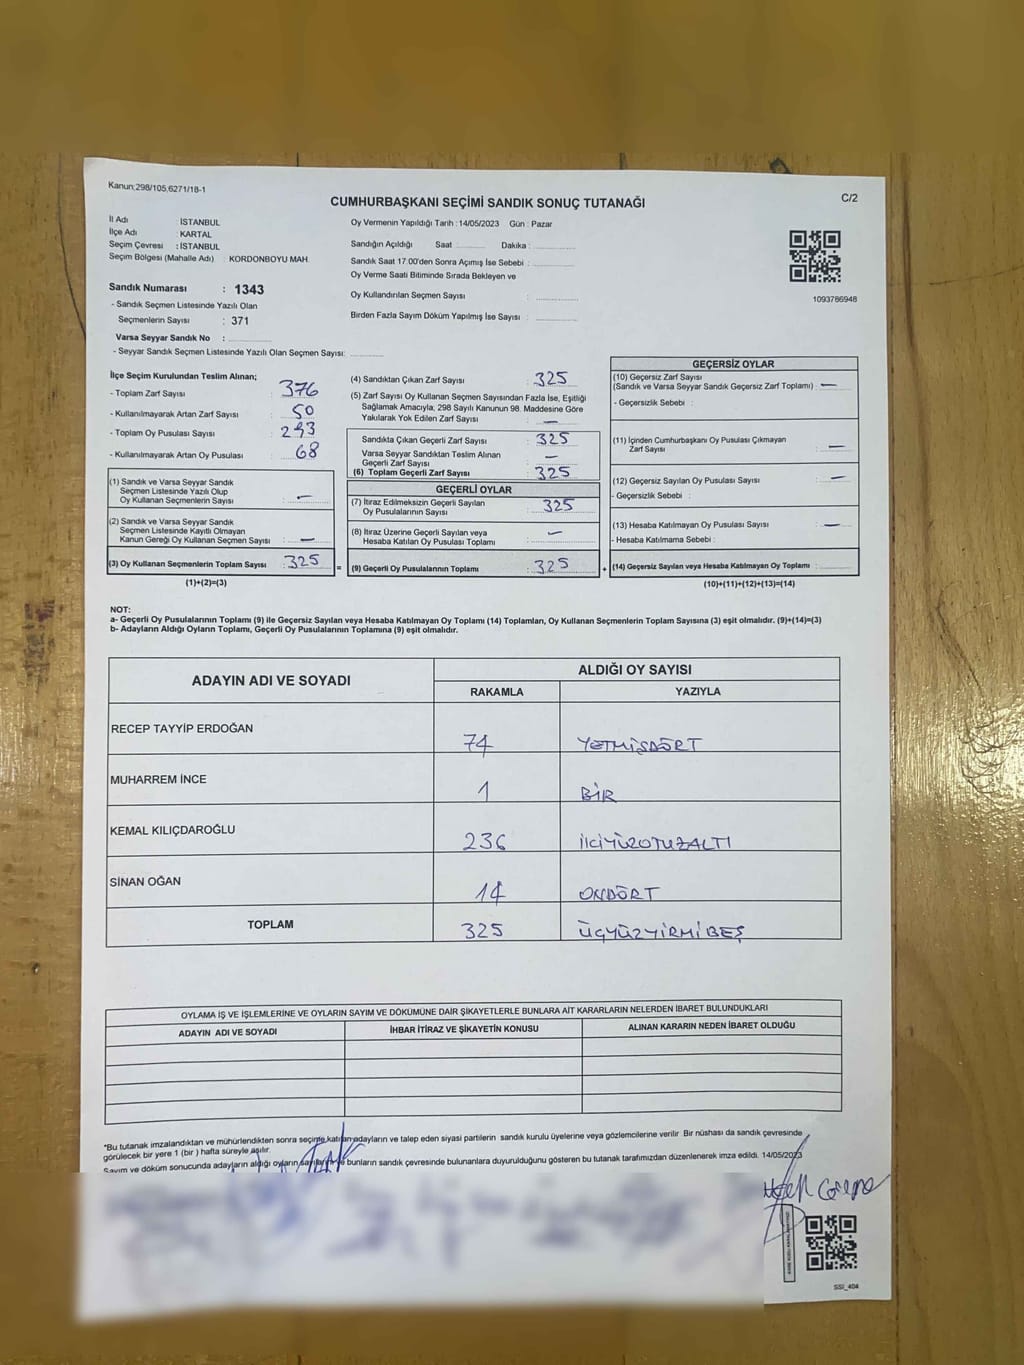 Kanun;298/105,6271/18-1
C/2
CUMHURBAŞKANI SEÇİMİ SANDIK SONUÇ TUTANAĞI
İl Adı : İSTANBUL
İlçe Adı : KARTAL
Seçim Çevresi : İSTANBUL
Seçim Bölgesi (Mahalle Adı) : KORDONBOYU MAH.
Sandık Numarası : 1343
- Sandık Seçmen Listesinde Yazılı Olan
Seçmenlerin Sayısı : 371
Varsa Seyyar Sandık No :
- Seyyar Sandık Seçmen Listesinde Yazılı Olan Seçmen Sayısı:
Oy Vermenin Yapıldığı Tarih :14/05/2023 Gün : Pazar
Sandığın Açıldığı Saat Dakika :
Sandık Saat 17.00'den Sonra Açımış İse Sebebi :
Oy Verme Saati Bitiminde Sırada Bekleyen ve
Oy Kullandırılan Seçmen Sayısı :
Birden Fazla Sayım Döküm Yapılmış İse Sayısı :
1093786948
İlçe Seçim Kurulundan Teslim Alınan;
- Toplam Zarf Sayısı : 376
- Kullanılmayarak Artan Zarf Sayısı : 50
- Toplam Oy Pusulası Sayısı : 293
- Kullanılmayarak Artan Oy Pusulası : 68
(1) Sandık ve Varsa Seyyar Sandık
Seçmen Listesinde Yazılı Olup
Oy Kullanan Seçmenlerin Sayısı : —
(2) Sandık ve Varsa Seyyar Sandık
Seçmen Listesinde Kayıtlı Olmayan
Kanun Gereği Oy Kullanan Seçmen Sayısı : —
(3) Oy Kullanan Seçmenlerin Toplam Sayısı : 325
(1)+(2)=(3)
=
(4) Sandıktan Çıkan Zarf Sayısı : 325
(5) Zarf Sayısı Oy Kullanan Seçmen Sayısından Fazla İse, Eşitliği
Sağlamak Amacıyla; 298 Sayılı Kanunun 98. Maddesine Göre
Yakılarak Yok Edilen Zarf Sayısı : —
Sandıkta Çıkan Geçerli Zarf Sayısı : 325
Varsa Seyyar Sandıktan Teslim Alınan
Geçerli Zarf Sayısı : —
(6) Toplam Geçerli Zarf Sayısı : 325
GEÇERLİ OYLAR
(7) İtiraz Edilmeksizin Geçerli Sayılan
Oy Pusulalarının Sayısı : 325
(8) İtiraz Üzerine Geçerli Sayılan veya
Hesaba Katılan Oy Pusulası Toplamı : —
(9) Geçerli Oy Pusulalarının Toplamı : 325
+
GEÇERSİZ OYLAR
(10) Geçersiz Zarf Sayısı
(Sandık ve Varsa Seyyar Sandık Geçersiz Zarf Toplamı) : —
- Geçersizlik Sebebi :
(11) İçinden Cumhurbaşkanı Oy Pusulası Çıkmayan
Zarf Sayısı : —
(12) Geçersiz Sayılan Oy Pusulası Sayısı : —
- Geçersizlik Sebebi :
(13) Hesaba Katılmayan Oy Pusulası Sayısı : —
- Hesaba Katılmama Sebebi :
(14) Geçersiz Sayılan veya Hesaba Katılmayan Oy Toplamı :
(10)+(11)+(12)+(13)=(14)
NOT:
a- Geçerli Oy Pusulalarının Toplamı (9) ile Geçersiz Sayılan veya Hesaba Katılmayan Oy Toplamı (14) Toplamları, Oy Kullanan Seçmenlerin Toplam Sayısına (3) eşit olmalıdır. (9)+(14)=(3)
b- Adayların Aldığı Oyların Toplamı, Geçerli Oy Pusulalarının Toplamına (9) eşit olmalıdır.
ADAYIN ADI VE SOYADI ALDIĞI OY SAYISI
RAKAMLA YAZIYLA
RECEP TAYYİP ERDOĞAN 74 YETMİŞDÖRT
MUHARREM İNCE 1 BİR
KEMAL KILIÇDAROĞLU 236 İKİYÜZOTUZALTI
SİNAN OĞAN 14 ONDÖRT
TOPLAM 325 ÜÇYÜZYİRMİBEŞ
OYLAMA İŞ VE İŞLEMLERİNE VE OYLARIN SAYIM VE DÖKÜMÜNE DAİR ŞİKAYETLERLE BUNLARA AİT KARARLARIN NELERDEN İBARET BULUNDUKLARI
ADAYIN ADI VE SOYADI İHBAR İTİRAZ VE ŞİKAYETİN KONUSU ALINAN KARARIN NEDEN İBARET OLDUĞU
*Bu tutanak imzalandıktan ve mühürlendikten sonra seçime katılan adayların ve talep eden siyasi partilerin sandık kurulu üyelerine veya gözlemcilerine verilir. Bir nüshası da sandık çevresinde
görülecek bir yere 1 (bir ) hafta süreyle asılır.
Sayım ve döküm sonucunda adayların aldığı oyların sayıları ve bunların sandık çevresinde bulunanlara duyurulduğunu gösteren bu tutanak tarafımızdan düzenlenerek imza edildi. 14/05/2023
SSI_404